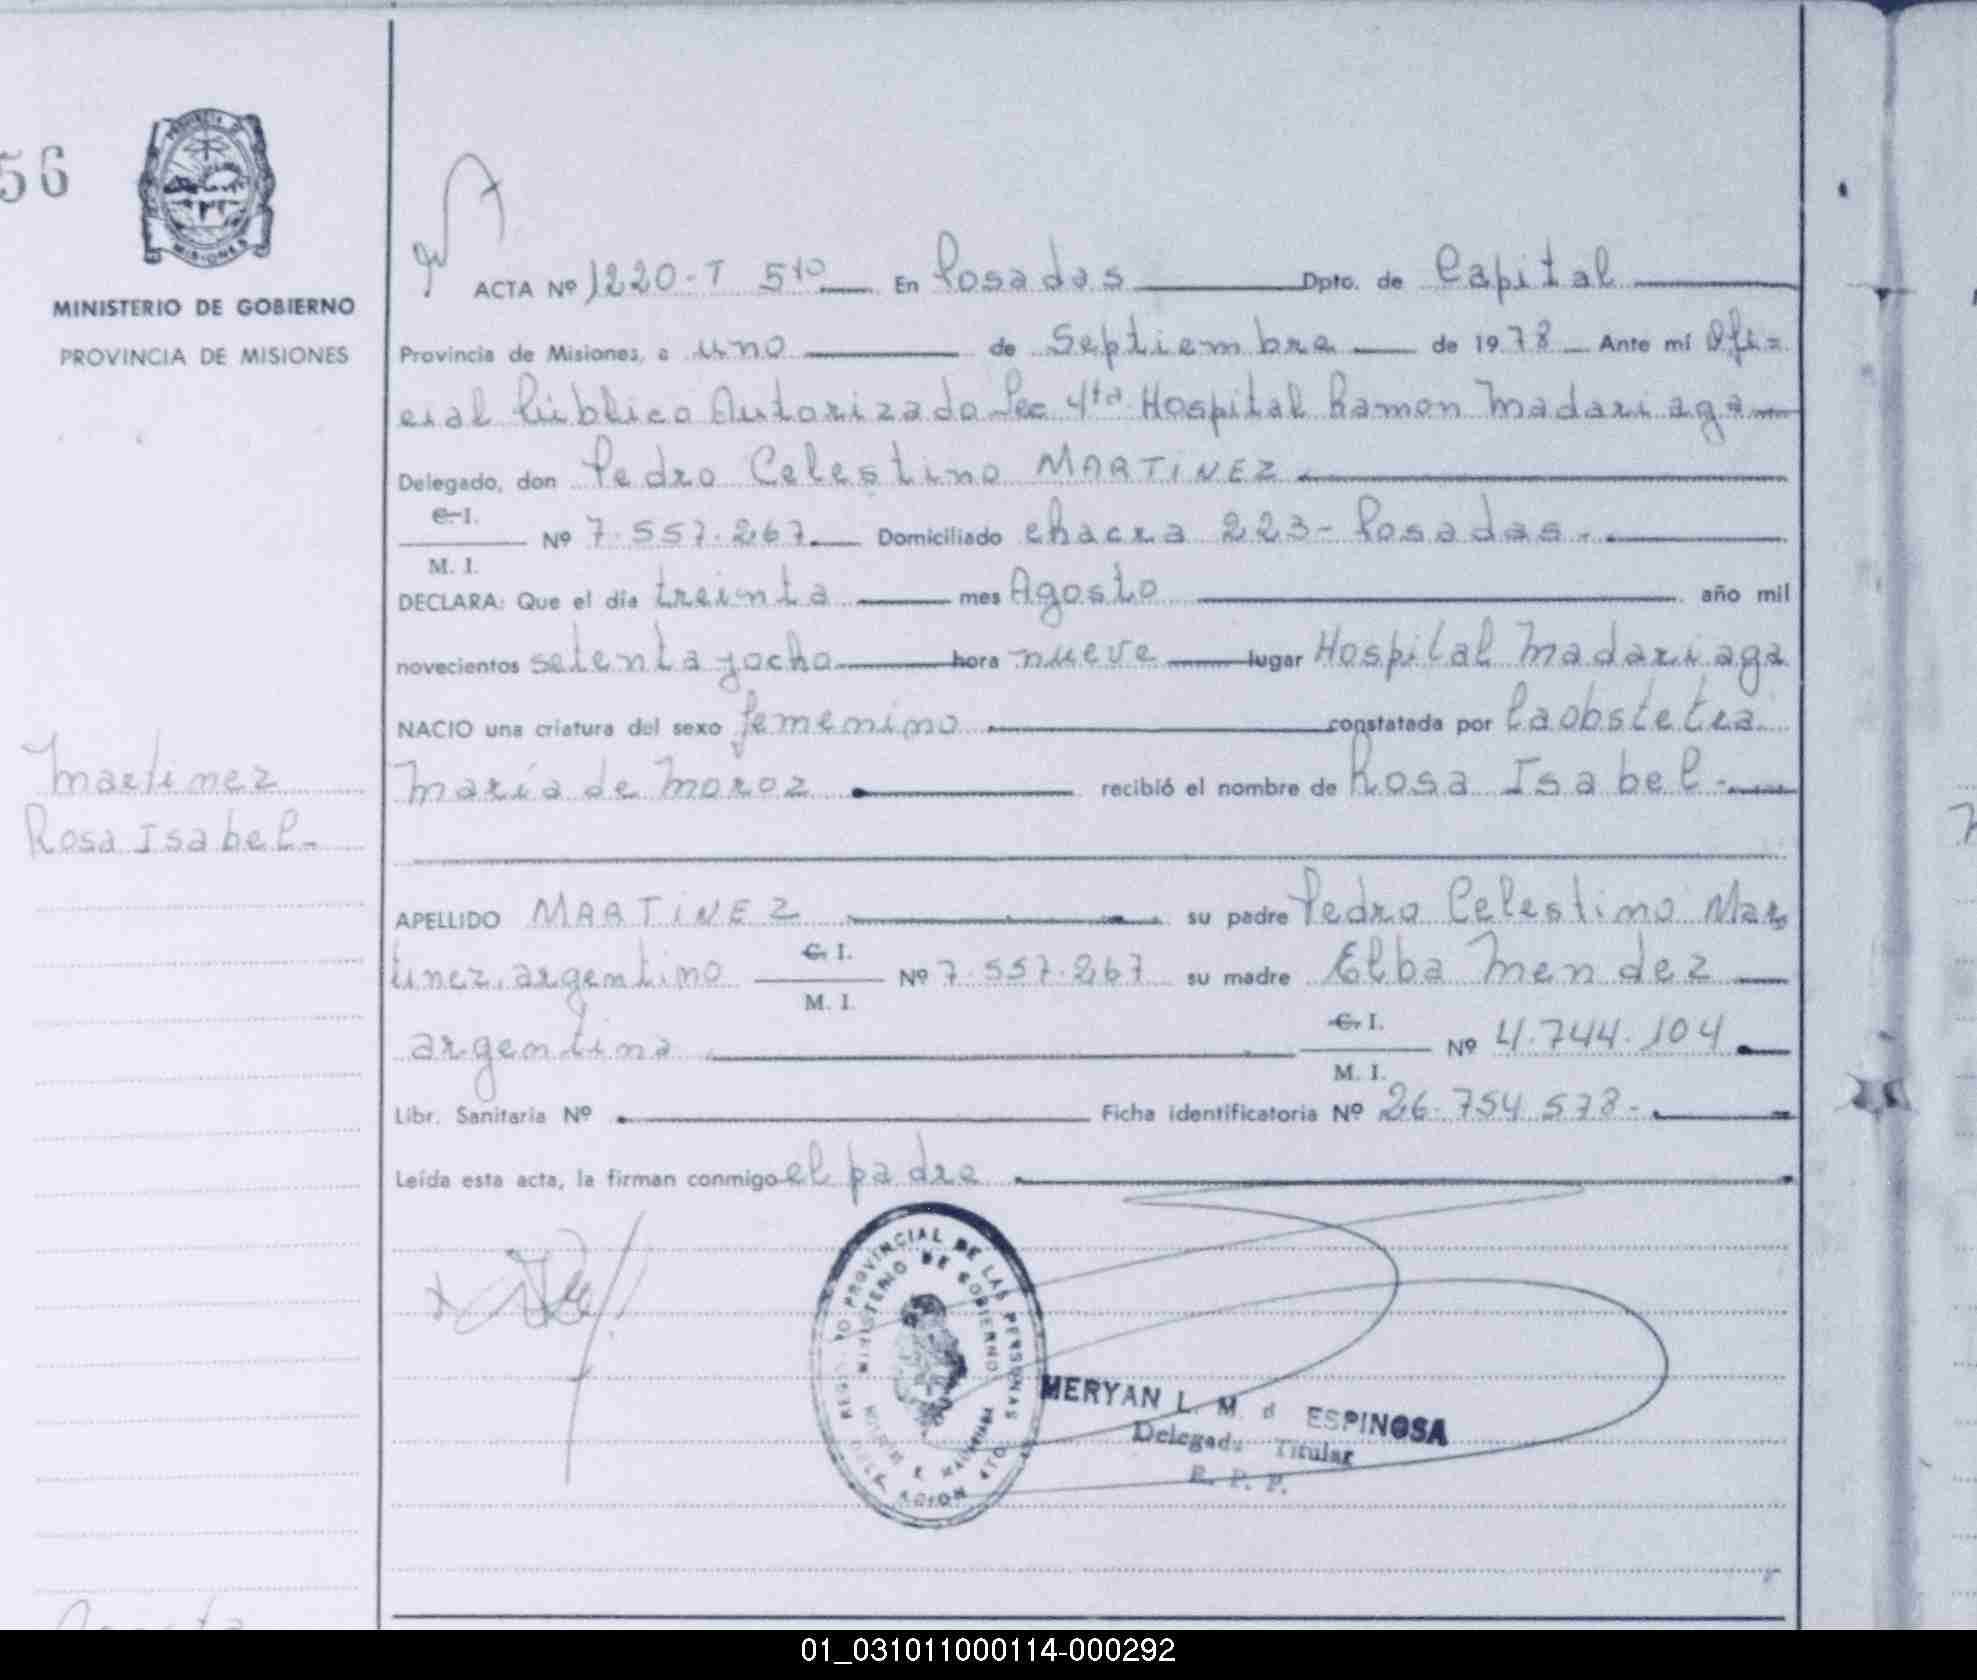 56
PROVINCIA D
MISIONES
MINISTERIO DE GOBIERNO
PROVINCIA DE MISIONES
ACTA Nº 1220-T 5to En Posadas Dpto. de Capital
Provincia de Misiones, a uno de Septiembre de 1978 Ante mí Ofi=
cial Público Autorizado Sec 4ta Hospital Ramon Madariaga
Delegado, don Pedro Celestino MARTINEZ
C. I.
Nº 7.557.267. Domiciliado chacra 223- Posadas.
M. I.
DECLARA: Que el día treinta mes Agosto año mil
novecientos setenta yocho hora nueve lugar Hospital Madariaga
NACIO una criatura del sexo femenino constatada por la obstetra
María de Moroz recibió el nombre de Rosa Isabel.
Martinez
Rosa Isabel.
APELLIDO MARTINEZ su padre Pedro Celestino Mar
tinez, argentino C. I. Nº 7.557.267 su madre Elba Mendez
M. I.
argentina C. I. Nº 4.744.104
M. I.
Libr. Sanitaria Nº Ficha identificatoria Nº 26.754.578-
Leída esta acta, la firman conmigo el padre
REGISTRO PROVINCIAL DE LAS PERSONAS
MINISTERIO DE GOBIERNO
MERYAN L. M. d ESPINOSA
Delegada Titular
R. P. P.
01_031011000114-000292